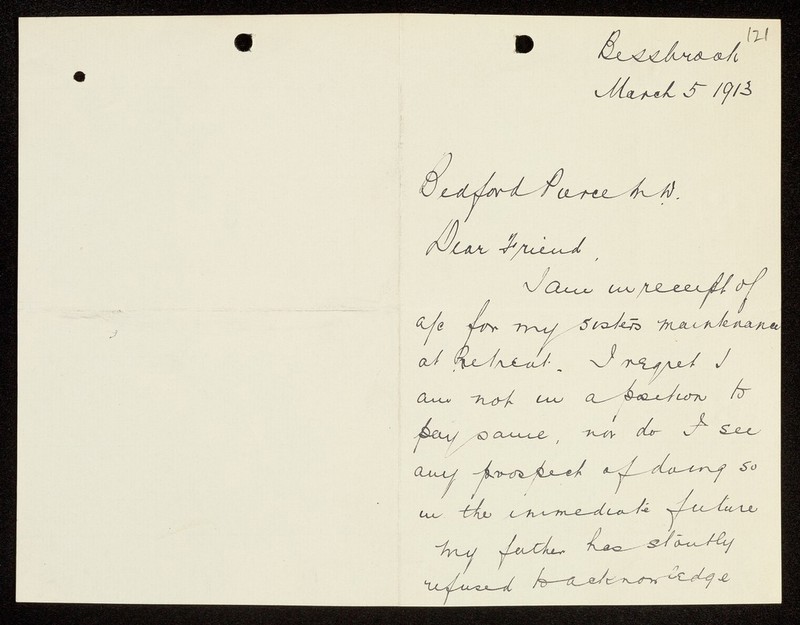 121
Bessbrook
March 5 1913
Bedford Pierce M.D.
Dear Friend,
I am in receipt of
a/c for my sisters maintenance
at Retreat. I regret I
am not in a position to
pay same, nor do I see
any prospect of doing so
in the immediate future
my father has stoutly
refused to acknowledge